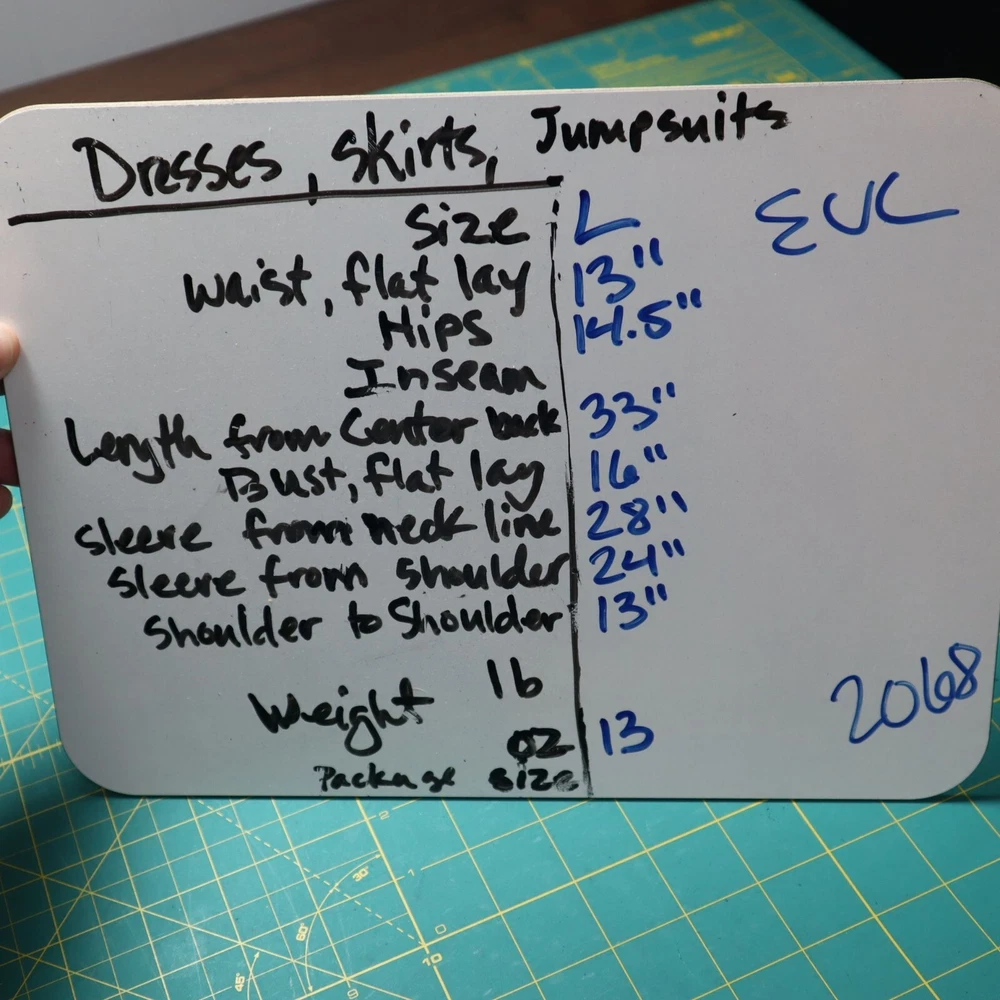 Dresses, skirts, Jumpsuits
Size L EUC
Waist, flat lay 13"
Hips 14.5"
Inseam
Length from Center back 33"
Bust, flat lay 16"
Sleeve from neck line 28"
Sleeve from shoulder 24"
Shoulder to Shoulder 13"
lb
Weight
oz 13
2068
Package size
2
30°
1
60°
0
10
45°